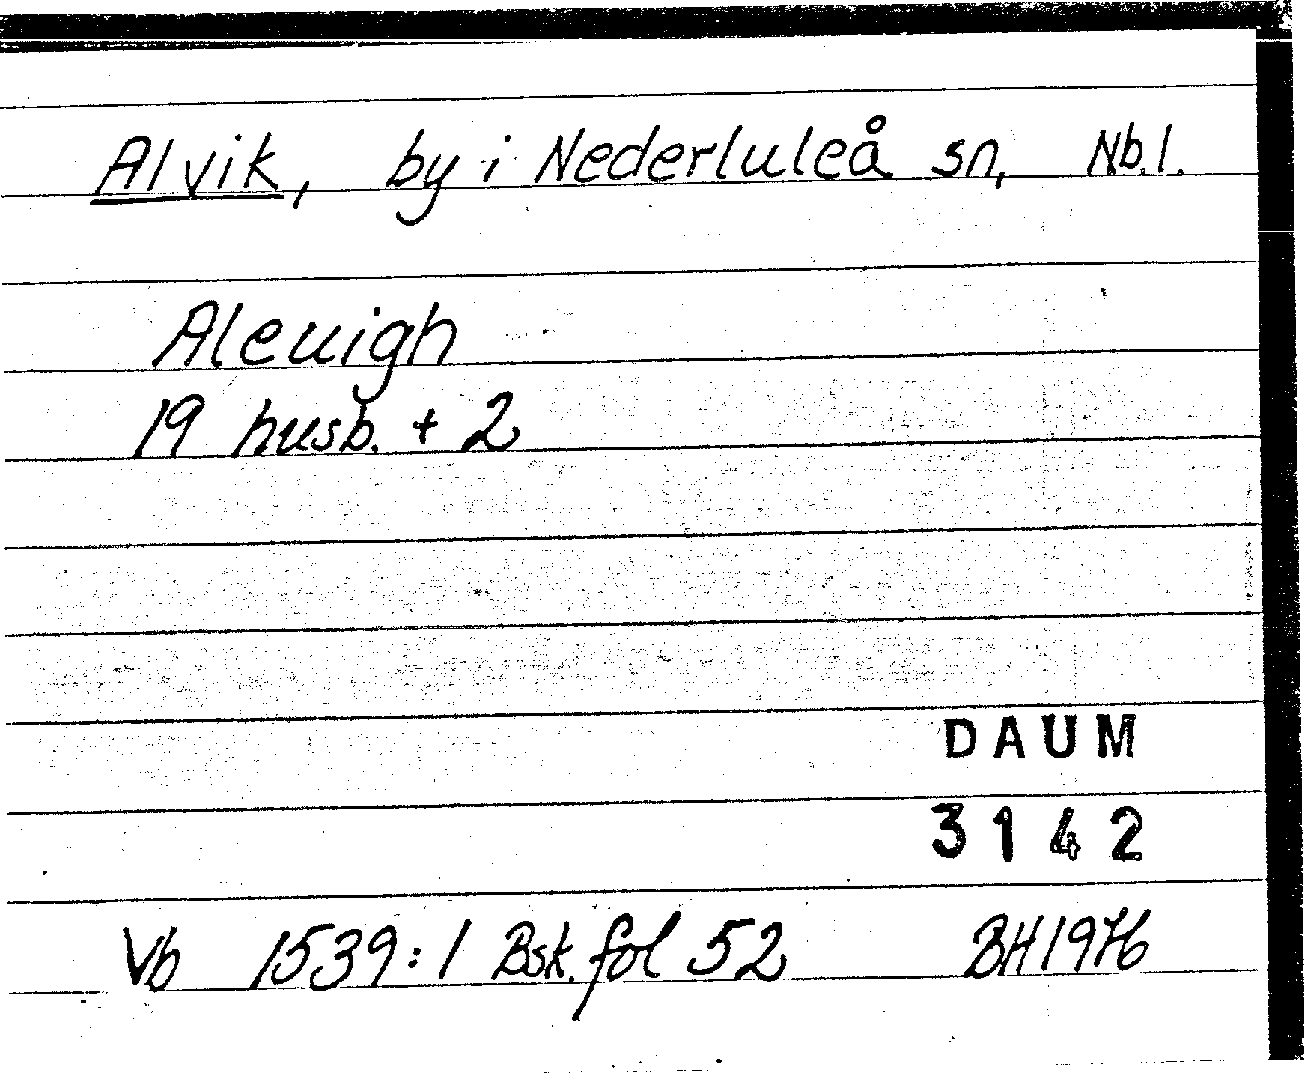 Alvik, by i Nederluleå sn, Nb.l.
Aleuigh
19 husb. + 2
DAUM
3142
Vb 1539:1 Bsk. fol 52 BH1976